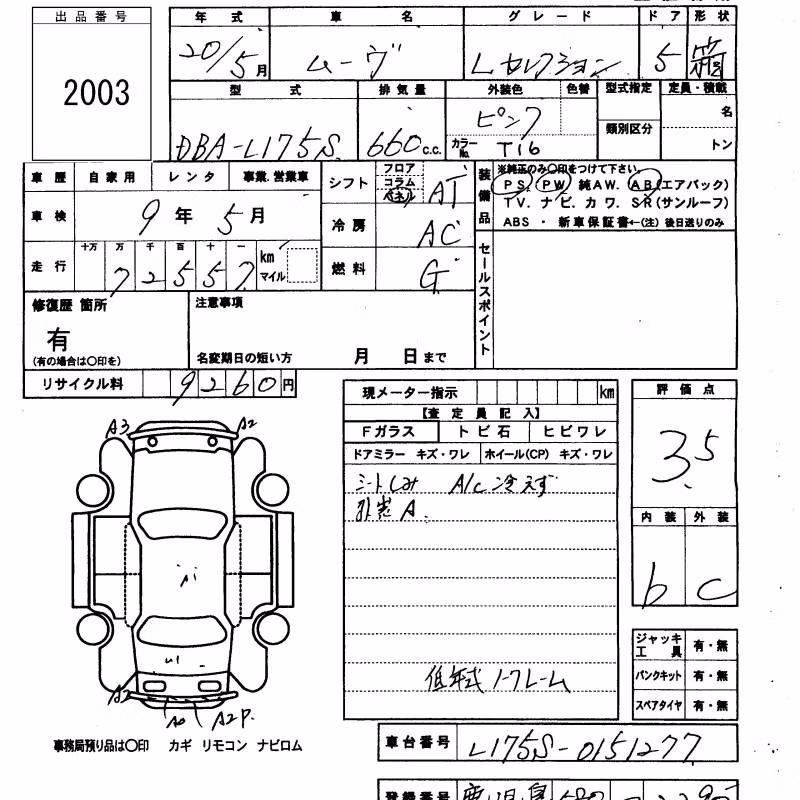 出品番号
2003
年式 車名 グレード ドア 形状
20/5月 ムーヴ Lセレクション 5 箱
型式 排気量 外装色 色替 型式指定 定員・積載
DBA-L175S 660c.c. ピンク 類別区分 名
カラーNo. T16 トン
車歴 自家用 レンタ 事業.営業車
車検 9年 5月
走行 十万 万 千 百 十 一
72557 km マイル
シフト フロア コラム パネル AT
冷房 AC
燃料 G
装備品 ※純正のみ〇印をつけて下さい。
PS. PW 純AW. AB(エアバック)
TV. ナビ. カワ. SR(サンルーフ)
ABS ・ 新車保証書←(注) 後日送りのみ
セールスポイント
修復歴 箇所 注意事項
有
(有の場合は〇印を) 名変期日の短い方 月 日まで
リサイクル料 9260円
現メーター指示 km
【査定員記入】
Fガラス トビ石 ヒビワレ
ドアミラー キズ・ワレ ホイール(CP) キズ・ワレ
シートしみ A/C冷えず
A.
低年式ノークレーム
評価点
3.5
内装 外装
b c
ジャッキ工具 有・無
パンクキット 有・無
スペアタイヤ 有・無
A3 A2
A1
U1
A2 A2P.
事務局預り品は〇印 カギ リモコン ナビロム
車台番号 L175S-0151277
登録番号 鹿児島 580